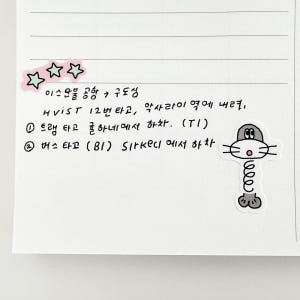 이스탄불 공항 → 구도심
HVIST 12번 타고, 악사라이 역에 내려,
① 트램 타고 귤하네에서 하차. (T1)
② 버스 타고 (B1) Sirkeci 에서 하차